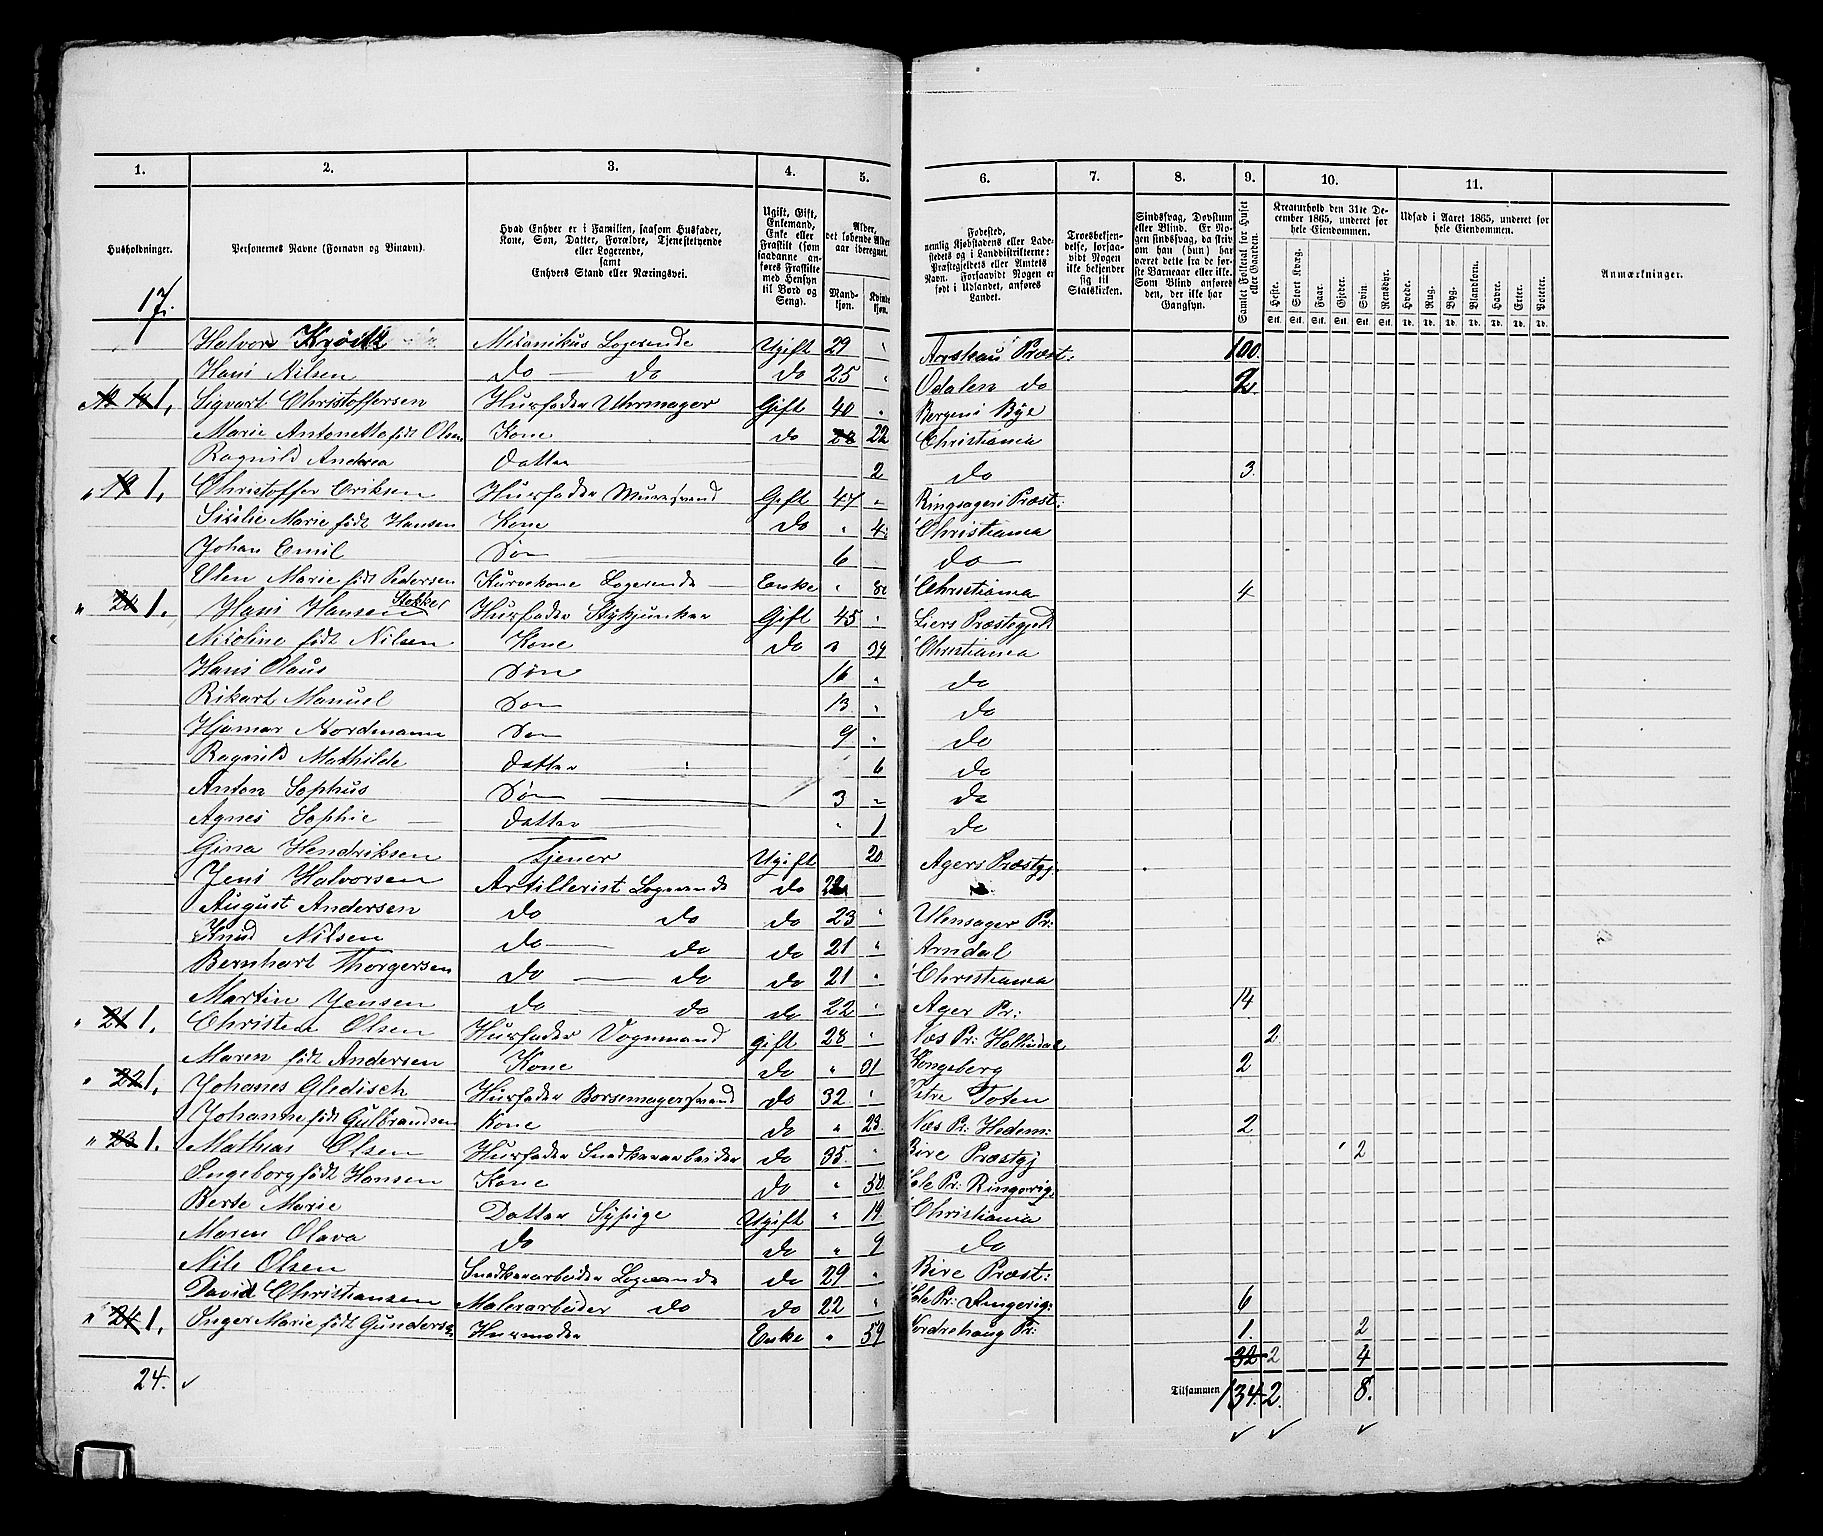 1. 2. 3. 4. 5. 6. 7. 8. 9. 10. 11.
Husholdninger.
Personernes Navne (Fornavn og Binavn).
Hvad Enhver er i Familien, saasom Husfader, Kone, Søn, Datter, Forældre, Tjenestetyende eller Logerende, samt Enhvers Stand eller Næringsvei.
Ugift, Gift, Enkemand, Enke eller Fraskilt (som saadanne anføres Fraskilte med Hensyn til Bord og Seng).
Alder, det løbende Alder aar iberegnet.
Mandkjøn. Kvindekjøn.
Fødested, nemlig Kjøbstadens eller Ladestedets og i Landdistrikterne: Præstegjeldets eller Amtets Navn. Forsaavidt Nogen er født i Udlandet, anføres Landet.
Troesbekjendelse, forsaavidt Nogen ikke bekjender sig til Statskirken.
Sindssvag, Døvstum eller Blind. Er Nogen sindssvag, da skriv om han (hun) har været dette fra de første Barneaar eller ikke. Som Blind anføres den, der ikke har Gangsyn.
Samlet Folketal for Huset eller Gaarden.
Kreaturhold den 31te December 1865, underet for hele Eiendommen.
Heste. Stort Kvæg. Faar. Gjeder. Svin. Rensdyr.
Stk. Stk. Stk. Stk. Stk. Stk.
Udsæd i Aaret 1865, underet for hele Eiendommen.
Hvede. Rug. Byg. Blandkorn. Havre. Erter. Poteter.
Td. Td. Td. Td. Td. Td. Td.
Anmærkninger.
17.
Halvor Krøitz Mekanikus Logerende Ugift 29 " Præst: 100.
Hans Nilsen do — do do 25 " Odalen do 2
1, Sigvart Christoffersen Husfader Uhrmager Gift 40 " Bergens Bye
Marie Antonette født Olsen Kone do 22 Christiania
Ragnild Andrea Datter 2 do 3.
19 1, Christoffer Eriksen Husfader Muursvend Gift 47 " Ringsagers Præst:
Sisilie Marie født Hansen Kone do " Christiania
Johan Emil Søn 6 do
Elen Marie født Pedersen Kurvekone Logerende Enke " 80 Christiania 4
" 20 1. Hans Hansen Stokker Husfader Stykjunker Gift 45 " Liers Præstegjeld
Nicoline født Nilsen Kone do " 39 Christiania
Hans Olaus Søn 16 " do
Rikart Manuel Søn 13 " do
Hjamar Nordmann Søn 9 " do
Ragnild Mathilde Datter 6 do
Anton Sophus Søn 3 " do
Agnes Sophie Datter " 1 do
Gina Hendriksen Tjener Ugift 20 Agers Præstgj.
Jens Halvorsen Artillerist Logerende do 22
August Andersen do do do 23 " Ulensager Pr:
Knud Nilsen do do do 21 " Arndal
Bernhart Thorgersen do do do 21 " Christiania
Martin Jensen do do do 22 " Ager Pr: 14
" 21 1. Christen Olsen Husfader Vognmand gift 28 " Næs Pr: Hallindal 2
Maren født Andersen Kone do " 31 Kongsberg 2
" 22 1, Johanes Gledisch Husfader Børsemagersvend do 32 " Vetre Toten
Johanne født Gulbrandsen Kone do " 23. Næs Pr: Hedem: 2.
" 23 1. Mathias Olsen Husfader Snedkerarbeider do 35. " Bire Præstgj 2
Ingeborg født Hansen Kone do " 50. Hole Pr: Ringerig:
Berte Marie Datter Sypige Ugift " 19 Christiania
Maren Olava do do " 9 do
Nils Olsen Snedkerarbeider Logerende do 29 " Bire Præst:
David Christiansen Malerarbeider do do 22 " Hole Pr: Ringerig: 6
" 24 1, Inger Marie født Gundersen Husmoder Enke " 59 Nordrehaug Pr: 1. 2
32 2 4
24. Tilsammen 134. 2. 8.